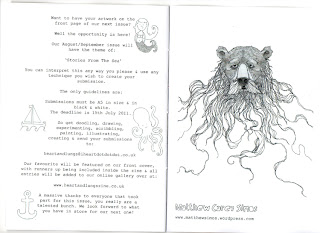 Want to have your artwork on the
front page of our next issue?
Well the opportunity is here!
Our August/September issue will
have the theme of:
'Stories From The Sea'
You can interpret this any way you please & use any
technique you wish to create your
submission.
The only guidelines are:
Submissions must be A5 in size & in
black & white.
The Deadline is 15th July 2011.
So get doodling, drawing,
experimenting, scribbling,
painting, illustrating,
creating & send your submissions
to:
Our favourite will be featured on our front cover,
with runners up being included inside the zine & all
entries will be added to our online gallery over at:
www.heartzandlungszine.co.uk
A massive thanks to everyone that took
part for this issue, you really are a
talented bunch. We look forward to what
you have in store for our next one!
www.matthewsimos.wordpress.com